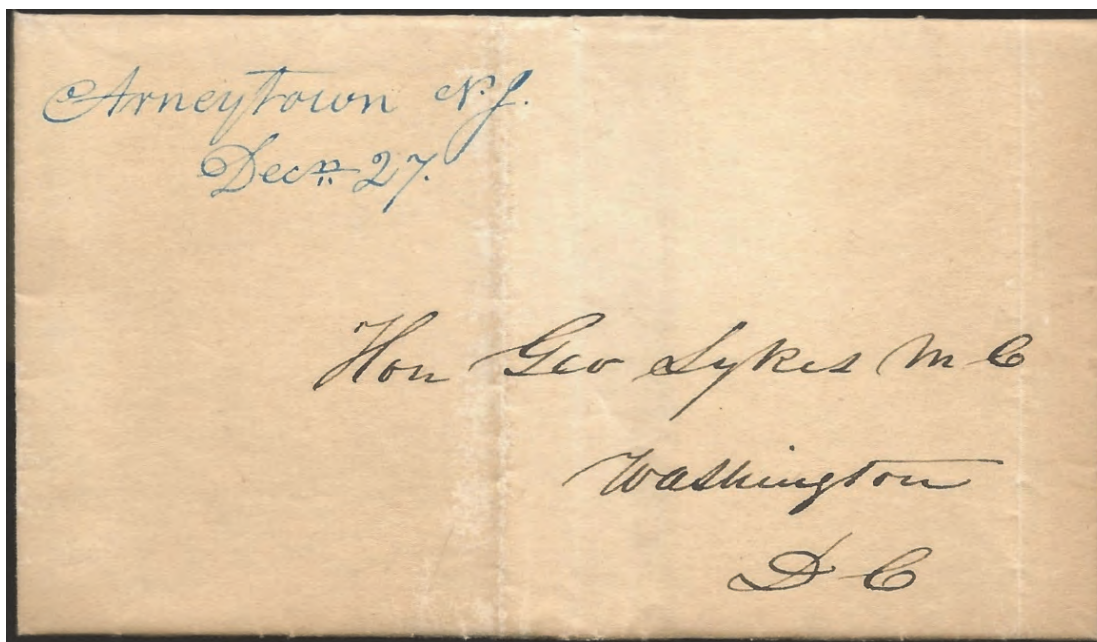 Arneytown N.J.
Decr. 27.
Hon Geo Sykes M C
Washington
D C